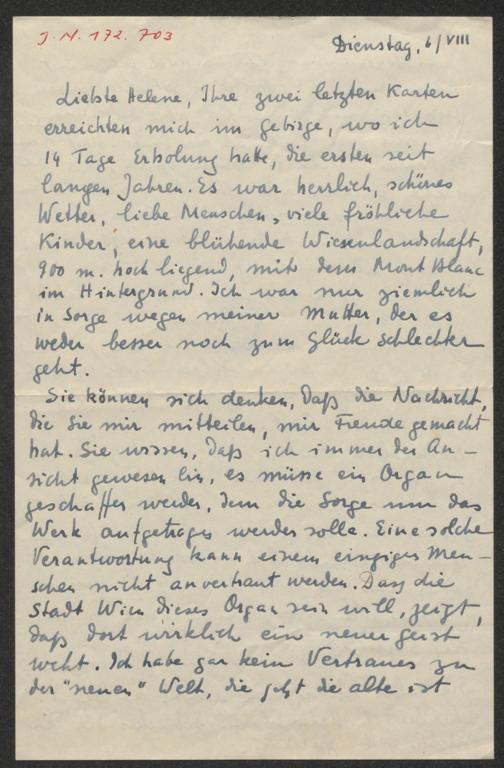 J. N. 172.703
Dienstag, 6/VIII
Liebste Helene, Ihre zwei letzten Karten
erreichten mich im Gebirge, wo ich
14 Tage Erholung hatte, die ersten seit
langen Jahren. Es war herrlich, schönes
Wetter, liebe Menschen, viele fröhliche
Kinder, eine blühende Wiesenlandschaft,
900 m. hoch liegend, mit dem Mont Blanc
im Hintergrund. Ich war nur ziemlich
in Sorge wegen meiner Mutter, der es
weder besser noch zum Glück schlechter
geht.
Sie können sich denken, daß die Nachricht,
die Sie mir mitteilen, mir Freude gemacht
hat. Sie wissen, daß ich immer der An-
sicht gewesen bin, es müsse ein Organ
geschaffen werden, dem die Sorge um das
Werk aufgetragen werden solle. Eine solche
Verantwortung kann einem einzigen Men-
schen nicht anvertraut werden. Dass die
Stadt Wien dieses Organ sein will, zeigt,
daß dort wirklich ein neuer Geist
weht. Ich habe gar kein Vertrauen zu
der "neuen" Welt, die jetzt die alte ist